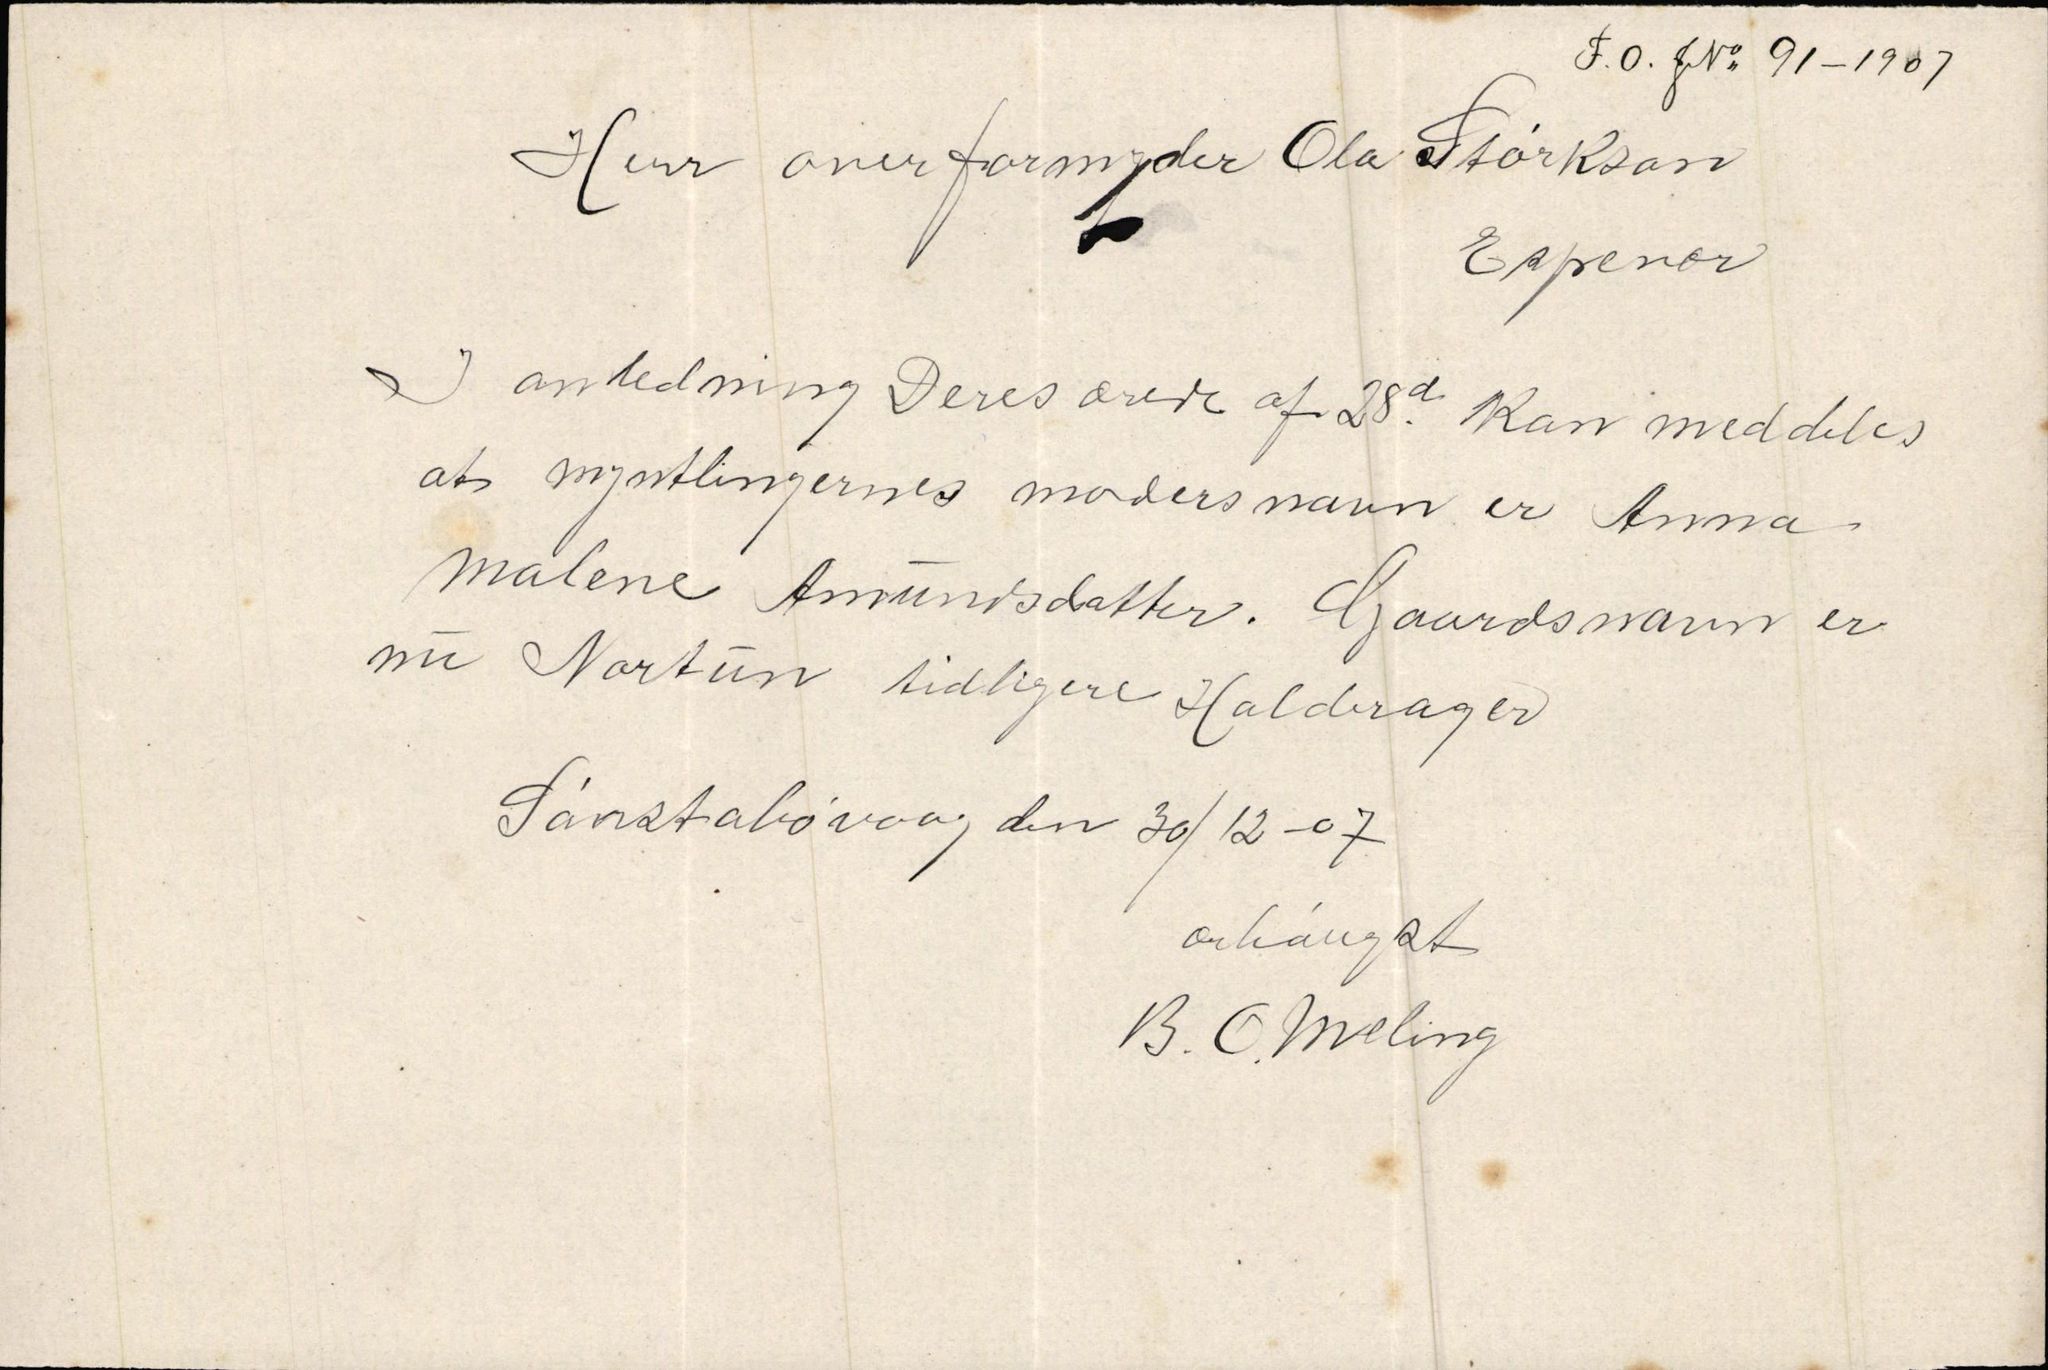 F.O. JNo 91-1907
Herr overformynder Ola Størkson
Espevær
I anledning Deres ærede af 28d. kan meddeles
at myntlingernes modersnavn er Anna
Malene Amundsdatter. Gaardsnavn er
nu Nortun tidligere Haldorager
den 30/12-07
ærbøugst
B. O. Meling